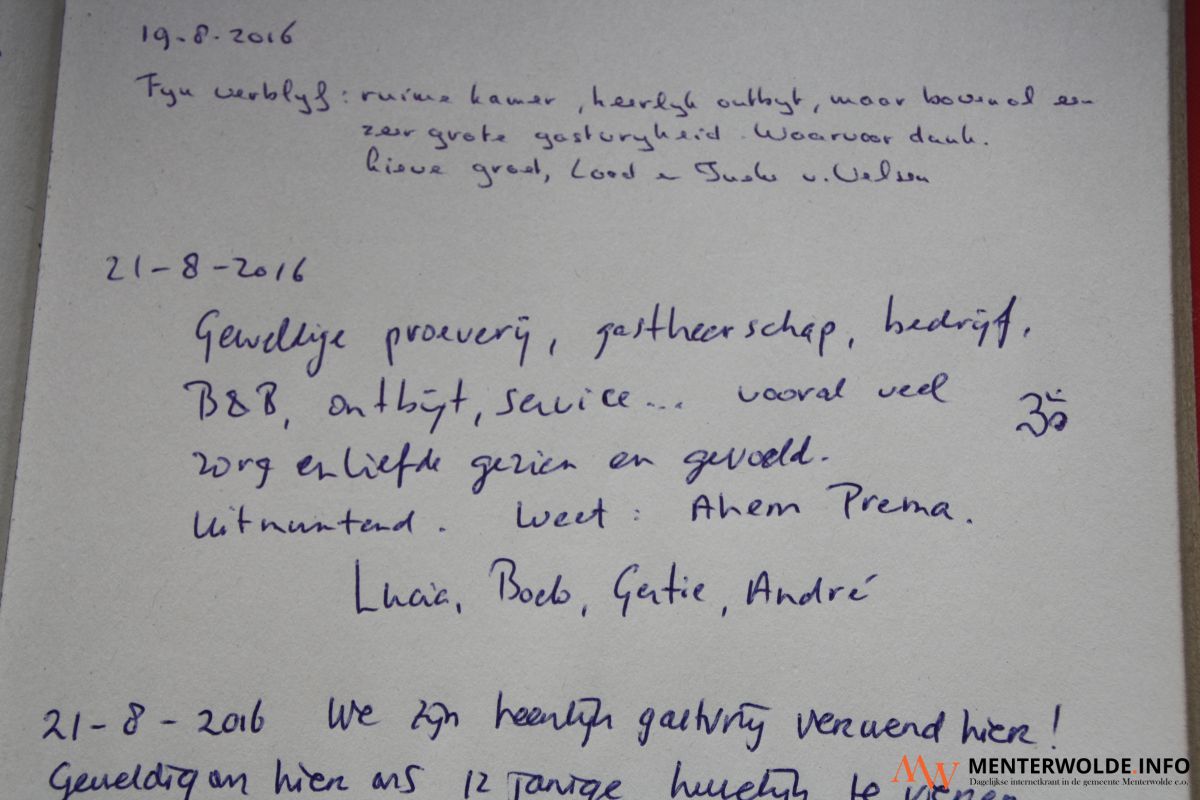 19-8-2016
Fyn verblyf: ruime kamer, heerlyk ontbyt, maar bovenal een
zeer grote gastvryheid. Waarvoor dank.
Lieve groet, v. Velsen
21-8-2016
Geweldige proeverij, gastheerschap, bedrijf,
B&B, ontbijt, service... vooral veel
zorg en liefde gezien en gevoeld.
Uitmuntend. Weet: Ahem Prema.
ॐ
Lucia, Bob, Gertie, André
21-8-2016 We zijn heerlijk gastvrij verwend hier!
Geweldig om hier ons 12 jarige huwelijk te vieren
MW MENTERWOLDE.INFO
Dagelijkse internetkrant in de gemeente Menterwolde e.o.